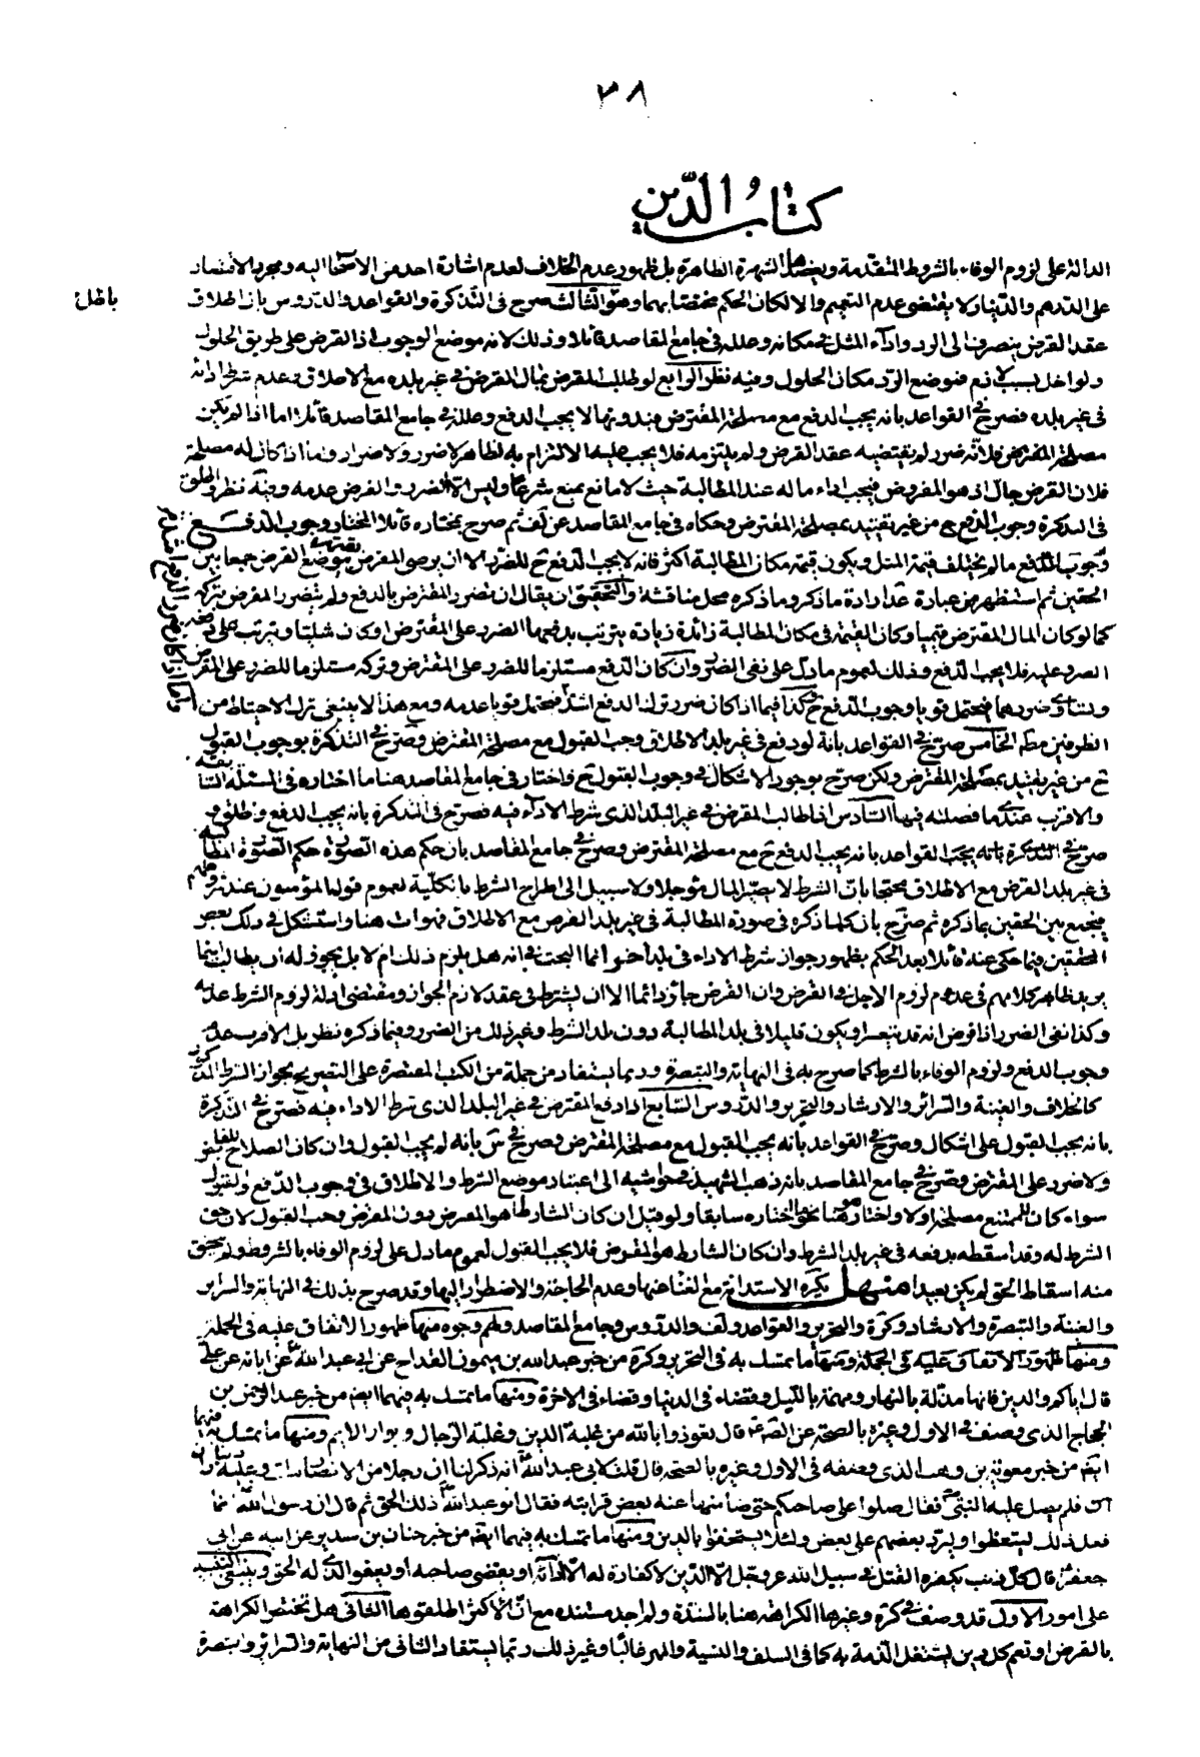 ٣٨
كتاب الدّين
الدالة على لزوم الوفاء بالشروط المتقدمة ويعضدها الشهرة الظاهرة بل ظهور عدم الخلاف لعدم اشارة احد من الاصحاب اليه ومجرد الاقتصار
على الدرهم والدّينار لا يقتضى عدم التعميم والا لكان الحكم مختصا بهما وهو الثّالث صرح فى التّذكرة والقواعد والدّروس بان اطلاق
باطل
عقد القرض ينصرف الى الرد واداء المثل فى مكانه وعلله فى جامع المقاصد قائلا وذلك لانه موضع الوجوب اذ القرض على طريق الحلول
ولو اجل بسبب لازم فموضع الردّ مكان الحلول وفيه نظر الرابع لو طلب المقرض بمال القرض فى غير بلده مع الاطلاق وعدم شرط ادائه
فى غير بلده فصرح فى القواعد بانه يجب الدفع مع مصلحة المقترض وبدونها لا يجب الدفع وعلله فى جامع المقاصد قائلا اما اذا لم يكن
مصلحة المقترض فلانّه ضرر لم يقتضيه عقد القرض ولم يلتزمه فلا يجب عليه الالتزام به لظاهر لا ضرر ولا ضرار واما اذا كان له مصلحة
فلان القرض حالّ اذ هو المفروض فيجب اداء ماله عند المطالبة حيث لا مانع يمنع شرعا وليس الا الضرر والفرض عدمه وفيه نظر واطلق
فى التذكرة وجوب الدفع ح من غير تقييد بمصلحة المقترض وحكاه فى جامع المقاصد عن لف ثم صرح بمختاره قائلا المختار وجوب الدفع
وجوب الدفع ما لم يختلف قيمة المثل ويكون قيمة مكان المطالبة اكثر فانه لا يجب الدفع ح للضرر الا ان يرضى المقرض بقيمته موضع القرض جمعا بين
الحقين ثم استظهر من عبارة عد ارادة ما ذكر وما ذكره محل مناقشة والتحقيق ان يقال ان تضرر المقترض بالدفع ولم يتضرر المقرض بتركه
كما لو كان المال المقترض قيميا وكان القيمة فى مكان المطالبة زائدة زيادة يترتب بدفعها الضرر على المقترض او كان مثليا وترتب على دفعه
الضرر عليه فلا يجب الدفع وذلك لعموم ما دلّ على نفى الضرر وان كان الدفع مستلزما للضرر على المقترض وتركه مستلزما للضرر على المقرض
وتساوى ضررهما فيحتمل قويا وجوب الدفع ح وكذا فيما اذا كان ضرر ترك الدفع اشدّ فيحتمل قويا عدمه ومع هذا لا ينبغى ترك الاحتياط من
الطرفين مطم الخامس صرح فى القواعد بانه لو دفع فى غير بلد الاطلاق وجب القبول مع مصلحة المقترض وصرح فى التذكرة بوجوب القبول
ح من غير تقييد بمصلحة المقترض ولكن صرح بوجود الاشكال فى وجوب القبول ح واختار فى جامع المقاصد هنا ما اختاره فى المسئلة السّابقة
والاقرب عندى ما فصلته فيها السّادس اذا طالب المقرض فى غير البلد الذى شرط الاداء فيه فصرح فى التذكرة بانه يجب الدفع وظاهره
صرح فى التذكرة بانّه يجب القواعد بانه يجب الدفع ح مع مصلحة المقترض وصرح فى جامع المقاصد بان حكم هذه الصّورة حكم الصّورة المطالبة
فى غير بلد القرض مع الاطلاق محتجا بانّ الشرط لا يصيّر المال مؤجلا ولا سبيل الى اطراح الشرط بالكلّية لعموم قوله المؤمنون عند شروطهم
فيجمع بين الحقين بما ذكره ثم صرّح بان كلما ذكره فى صورة المطالبة فى غير بلد القرض مع الاطلاق فهو ات هنا واستشكل فى ذلك بعض
المحققين فيما حكى عنه قائلا بعد الحكم بظهور جواز شرط الاداء فى بلد اخر انما البحث فى انه هل يلزم ذلك ام لا بل يجوز له ان يطالب اينما
يريد ظاهر كلامهم فى عدم لزوم الاجل فى القرض وان القرض جائز دائما الا ان يشترط فى عقد لازم الجواز ومقتضى ادلة لزوم الشرط عدمه
وكذا نفى الضرر اذا فرض انه قد يتعسر او يكون قليلا فى بلد المطالبة دون بلد الشرط وغير ذلك من الضرر وفيما ذكره نظر بل الاقرب عدم
وجوب الدفع ولزوم الوفاء بالشرط كما صرح به فى النهاية والتبصرة وربما يستفاد من جملة من الكتب المقتصرة على التصريح بجواز الشرط المذكور
كالخلاف والغنية والسّرائر والارشاد والتحرير والدّروس السّابع اذا دفع المقترض فى غير البلد الذى شرط الاداء فيه فصرح فى التذكرة
بانه يجب القبول على اشكال وصرح فى القواعد بانه يجب القبول مع مصلحة المقترض وصرح فى س بانه لم يجب القبول وان كان الصلاح للقابض
ولا ضرر على المقرض وصرح فى جامع المقاصد بانه ذهب الشهيد فى حواشيه الى اعتبار موضع الشرط والاطلاق فى وجوب الدّفع والقبول
سواء كان للممتنع مصلحة او لا واختار هو هنا نحو ما اختاره سابقا ولو قيل ان كان الشارط هو المقرض دون المقترض وجب القبول لان حق
الشرط له وقد اسقطه بدفعه فى غير بلد الشرط وان كان الشارط هو المقرض فلا يجب القبول لعموم ما دل على لزوم الوفاء بالشروط ولم يتحقق
منه اسقاط الحق لم يكن بعيدا منهل يكره الاستدانة مع الغنا عنها وعدم الحاجة والاضطرار اليها وقد صرح بذلك فى النهاية والسرائر
والغنية والتبصرة والارشاد وكرة والتحرير والقواعد ولف والدروس وجامع المقاصد ولهم وجوه منها ظهور الاتفاق عليه فى الجملة
ومنها ظهور الاتفاق عليه فى الجملة ومنها ما تمسك به فى التحرير وكرة من خبر عبد الله بن ميمون القداح عن ابى عبد الله ع عن ابائه عن على ع
قال اياكم والدين فانها مذلّة بالنهار ومهمّة بالليل وقضاء فى الدنيا وقضاء فى الاخرة ومنها ما تمسك به فيهما ايضم من خبر عبد الرحمن بن
الحجاج الذى وصف فى الاول وغيره بالصحّة عن الصّم ع قال تعوّذوا بالله من غلبة الدين وغلبة الرّجال وبوار الايم ومنها ما تمسك به فيهما
ايضم من خبر معوية بن وهب الذى وصفه فى الاول وغيره بالصحة قال قلت لابى عبد الله ع انه ذكر لنا ان رجلا من الانصار مات وعليه ديناران
دين فلم يصل عليه النبى ص فقال صلوا على صاحبكم حتى ضمنها عنه بعض قرابته فقال ابو عبد الله ع ذلك الحق ثم قال ان رسول الله ص انما
فعل ذلك ليتعظوا وليرد بعضهم على بعض ولئلا يستخفوا بالدين ومنها ما تمسك به فيهما ايضم من خبر حنان بن سدير عن ابيه عن ابى
جعفر ع قال كل ذنب يكفره القتل فى سبيل الله عز وجل الا الدّين لا كفارة له الا اداؤه او يقضى صاحبه او يعفو الذى له الحق وينبغى التنبيه
على امور الاول قد وصف فى كرة وغيرها الكراهة هنا بالشدّة ولم اجد مستنده مع انّ الاكثر اطلقوها الثّانى هل تختص الكراهة
بالقرض او تعم كل دين يشتغل الذّمة به كما فى السلف والنسية والمهر غالبا وغير ذلك ربّما يستفاد الثانى من النهاية والسّرائر والتبصرة